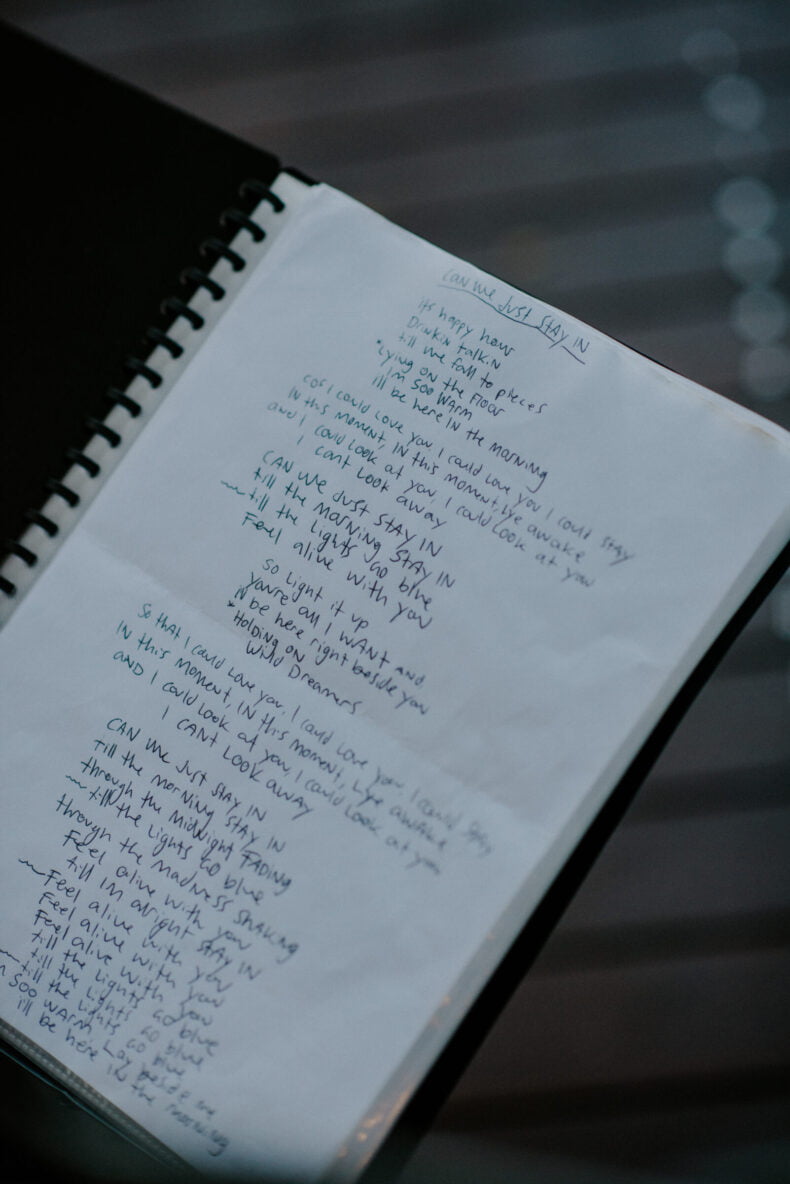 CAN WE JUST STAY IN
its happy how
Drinkin talkin
till we fall to pieces
*Lying on the floor
Im Soo Warm
ill be here in the morning
cos I could love you, I could love you I could stay
In this moment, in this moment, lye awake
and I could look at you, I could look at you
I cant look away
CAN WE JUST STAY IN
till the morning STAY IN
~till the lights go blue
Feel alive with you
So light it up
you're all I WANT and
be here right beside you
*Holding on
Wild Dreamers
So that I could love you, I could love you, I could stay
IN this moment, IN this moment, Lye awake
AND I could look at you, I could look at you
I CANT LOOK AWAY
CAN WE JUST STAY IN
Till the morning STAY IN
through the Midnight FADING
~till the lights go blue
through the madness shaking
Feel alive with you
till IM alright STAY IN
~Feel alive with you
Feel alive with you
Feel alive with you
till the lights go blue
till the lights go blue
~till the lights go blue
Soo warm, Lay beside me
ill be here in the morning